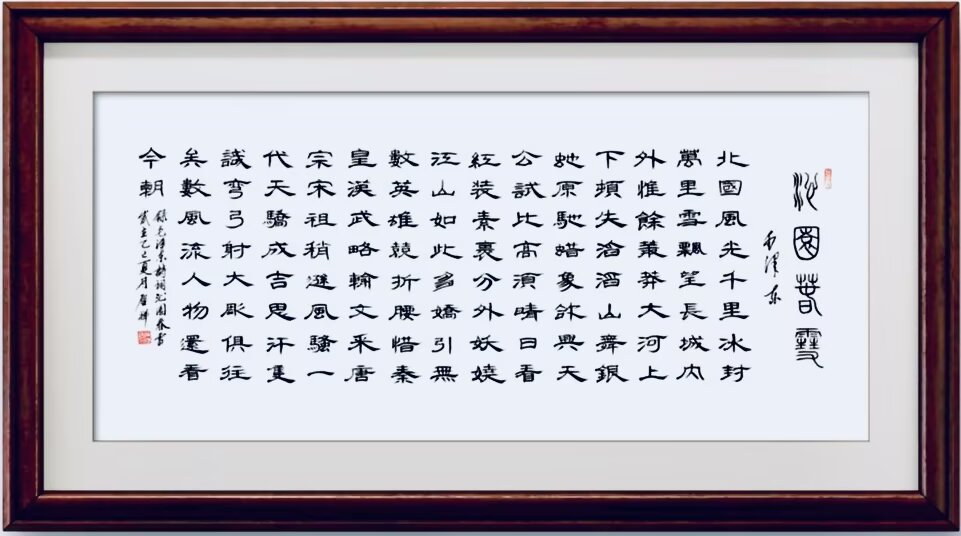 沁園春雪
毛澤東
北國風光千里冰封
萬里雪飄望長城内
外惟餘莽莽大河上
下頓失滔滔山舞銀
蛇原馳蜡象欲與天
公試比高須晴日看
紅裝素裹分外妖嬈
江山如此多嬌引無
數英雄競折腰惜秦
皇漢武略輸文采唐
宗宋祖稍遜風騷一
代天驕成吉思汗隻
識彎弓射大彫俱往
矣數風流人物還看
今朝
錄毛澤東詩詞沁園春雪
歲在乙巳夏月